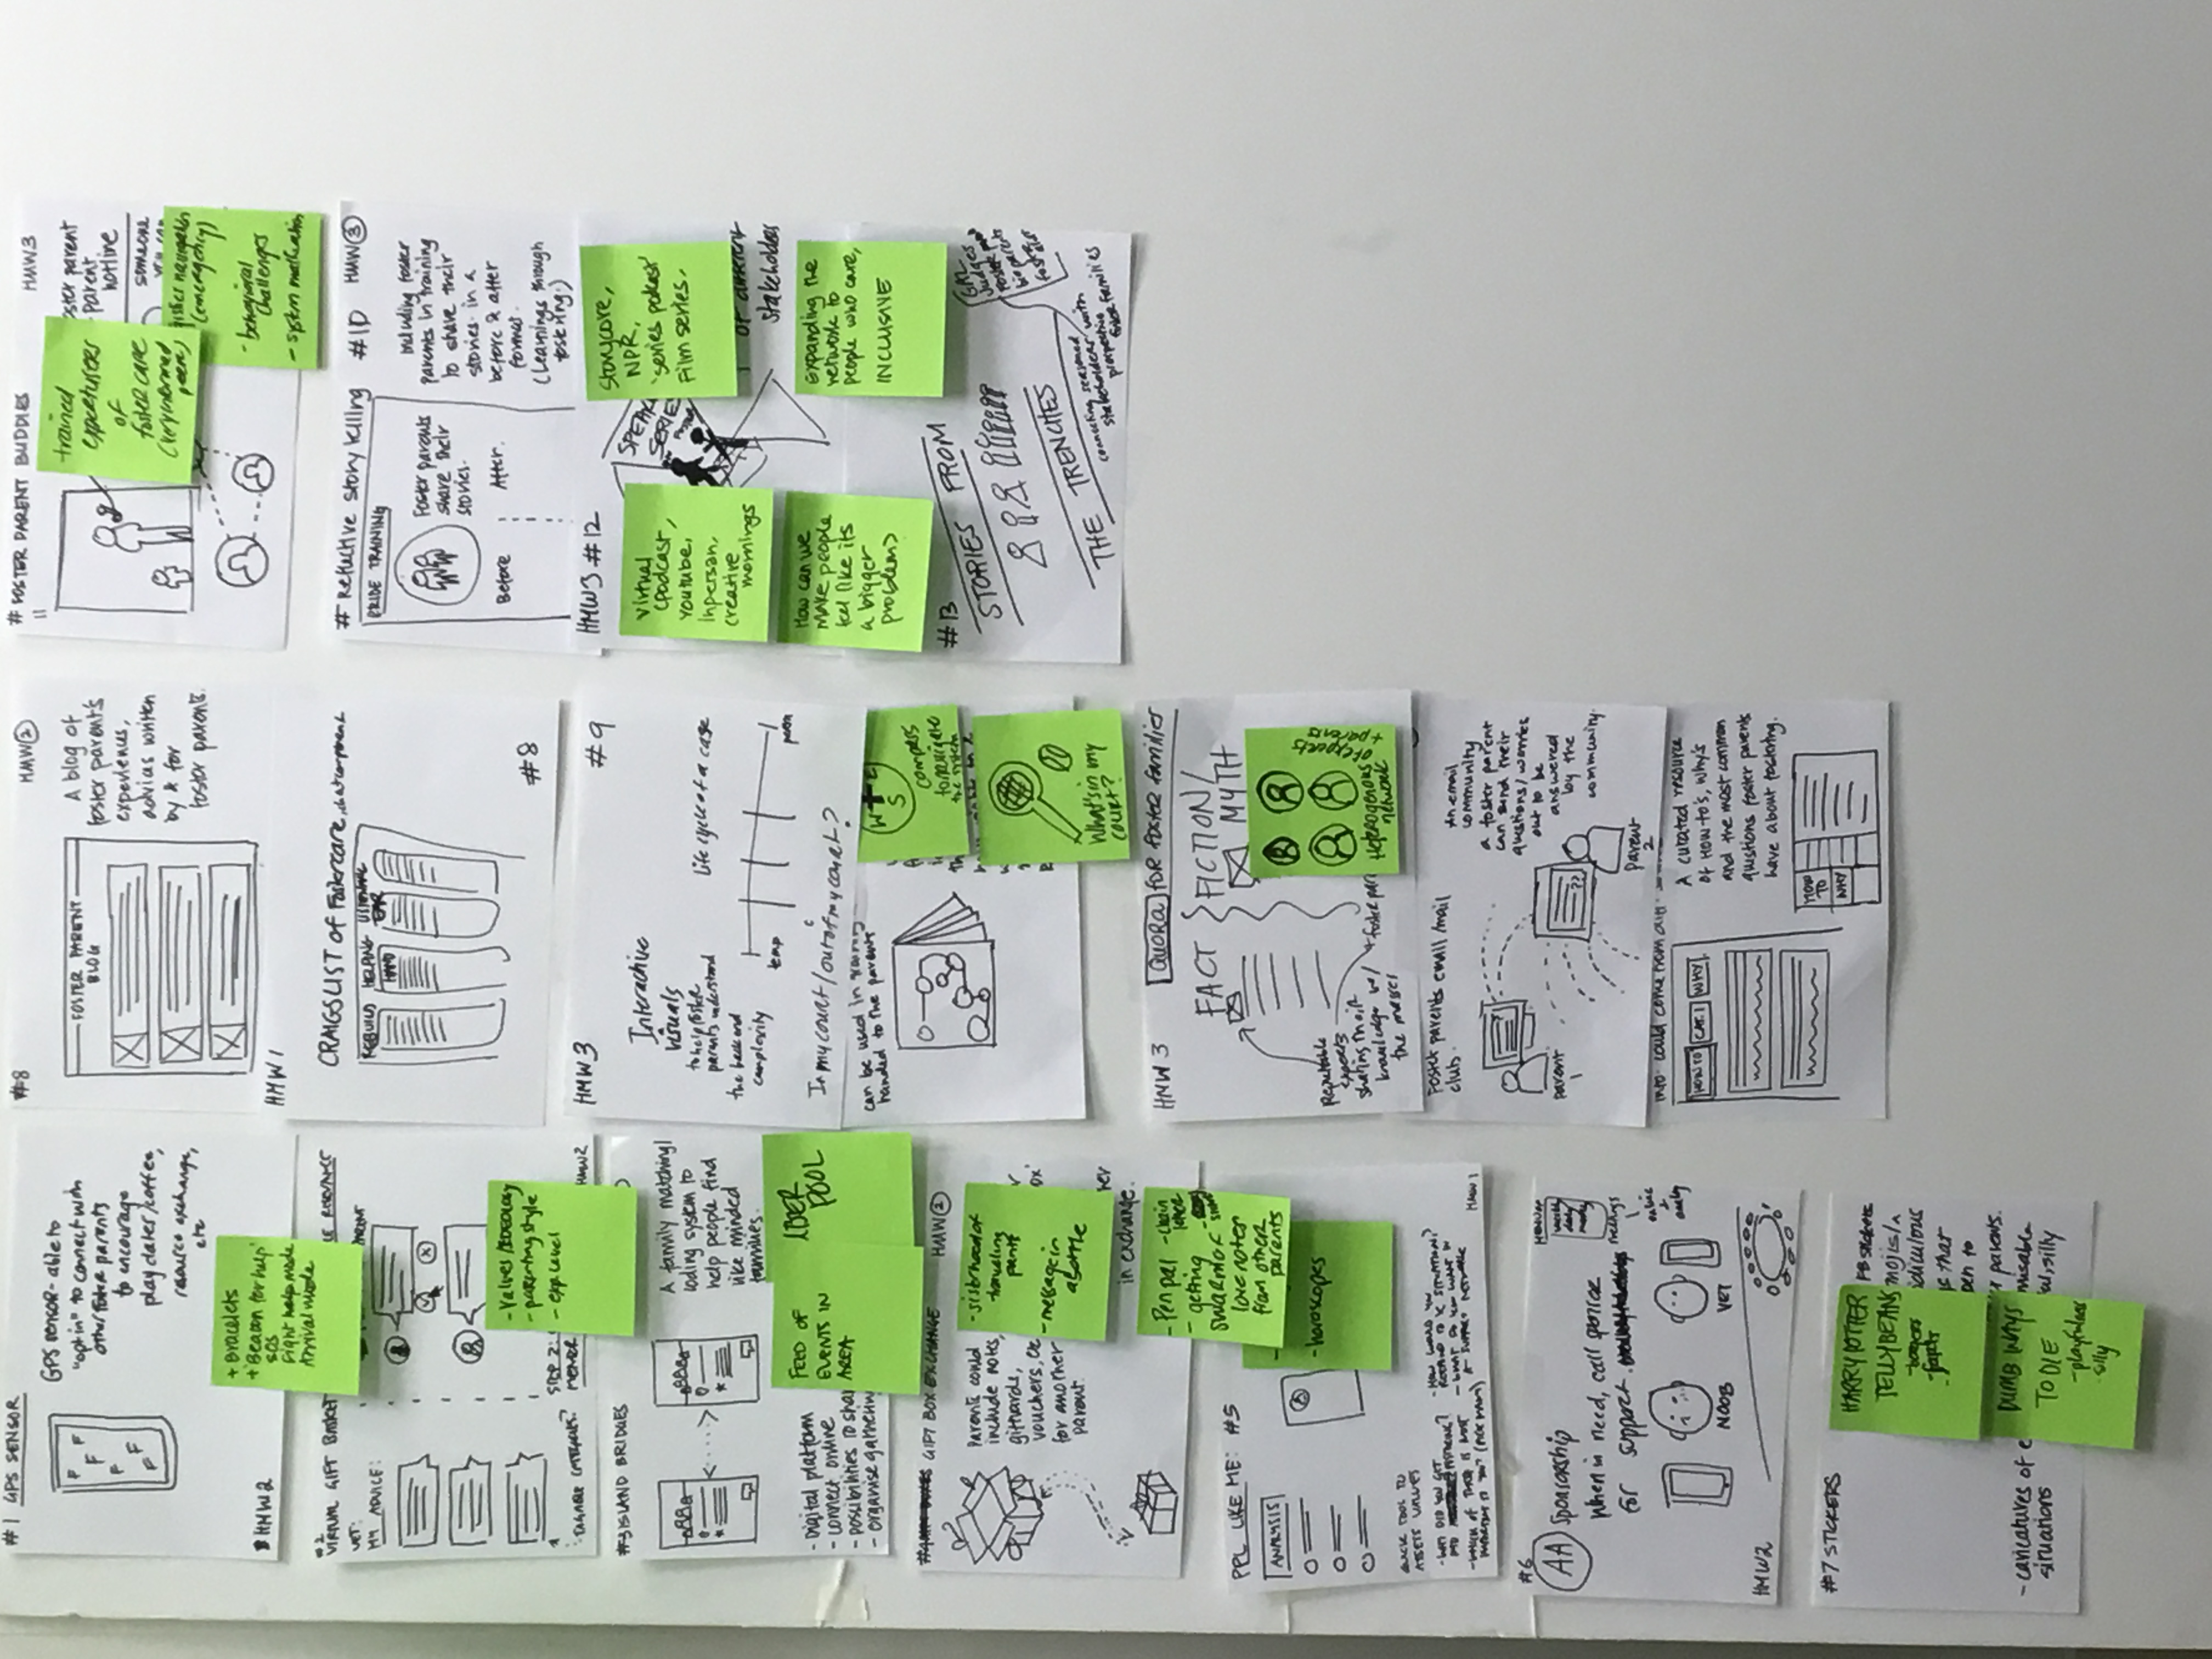 #1 GPS SENSOR
GPS sensor - able to
"opt in" to connect with
other foster parents
to encourage
play dates/coffee,
resource exchange,
etc
F F
F
F F
F
HMW2
+ Bracelets
+ "Beacon for help"
SOS
Fight help mode
Arrival mode
#2
VIRTUAL GIFT BASKET
VET:
MY ADVICE:
TAGGABLE CATEGORIES?
STEP 2:
HMW2
- Values/IDEOLOGY
- parenting style
- exp level
#3 ISLAND BRIDGES
A family matching/
coding system to
help people find
like minded
families.
- Digital platform
- connect online
- possibilities to sha
- organise gatherin
FEED OF
EVENTS IN
AREA
UBER
POOL
GIFT BOX EXCHANGE
HMW②
Parents could
include notes,
giftcards,
vouchers, etc
for another
parent.
in exchange.
- sisterhood of
traveling
pants
- message in
a bottle
- Pen pal
- chain
letter
- getting
swarm of
love notes
from other
parents
PPL LIKE ME: #5
ANALYSIS
- horoscopes
QUICK TOOL TO
ASSETS VALUES
- WHY DID YOU GET
INTO FOSTERING?
- WHICH OF THESE IS MOST
IMPORTANT TO YOU? (PICK MANY)
- HOW WOULD YOU
RESPOND TO X SITUATION?
- WHAT DO YOU WANT IN
A SUPPORT NETWORK
HMW1
#6
AA Sponsorship
When in need, call sponsor
for support.
meetings
NOOB
VET
HMW2
#7 STICKERS
HARRY POTTER
JELLYBEANS
- boogers
- farts
FB stickers
mojis/
idiculous
s that
pen to
r parents.
- caricatures of e
situations
misable
al, silly
DUMB WAYS
TO DIE
- playfulness
- silly
#8
HMW②
FOSTER PARENT
BLOG
A blog of
foster parent's
experiences,
advices written
by & for
foster parents.
HMW1
CRAIGSLIST of Fostercare, chat component
REBUILD
HELPING
HAND
LISTENING
EAR
#8
HMW3
#9
Interactive
visuals
to help foster
parents understand
the backend
complexity
Life cycle of a case
temp
perm
In my court/out of my court?
can be used in training
handed to the parents
W E
S
compass
to navigate
the system
What's in my
court?
HMW 3
QUORA for foster families
FACT
FICTION/
MYTH
Reputable
experts
sharing their
knowledge w/
the masses
+ foster par
Heterogenous
network
of experts
+ parents
Foster parents email/mail
club.
parent
1
Parent
2
An email
community
a foster parent
can send their
questions/worries
out to be
answered
by the
community.
info could come from
HOW TO
CAT.1
WHY
A curated resource
of How-to's, Why's
and the most common
questions foster parents
have about fostering.
HOW
TO
WHY
# FOSTER PARENT BUDDIES
11
HMW3
trained
expert users
of
foster care
(very informed
peers)
oster parent
parent
hotline
someone
you can
istics navigation
(emergency)
- behavioral
challenges
- system
# Reflective storytelling
#10
HMW③
PRIDE TRAINING
Foster parents
share their
stories.
Before
After.
Including foster
parents in training
to share their
stories in a
before & after
format.
(Learnings through
fostering.)
HMW3 #12
SPEAK
SERIES
Virtual
(podcast,
youtube,
inperson,
creative
mornings
Storycore,
NPR,
'series podcast'
Film series,
of different
stakeholders
How can we
make people
feel like its
a bigger
problem?
Expanding the
network to
people who care,
INCLUSIVE
#13
STORIES FROM
THE TRENCHES
GAL
Judges
Foster
bio parents
connecting seasoned
stakeholders with
prospective
foster families